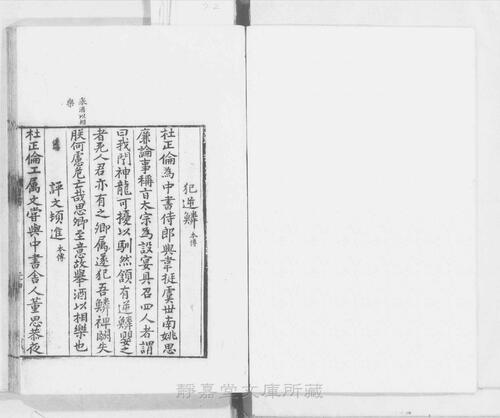 犯逆鱗 本傳
杜正倫為中書侍郎與韋挺虞世南姚思
廉論事稱旨太宗為設宴具召四人者謂
曰我聞神龍可擾以馴然頷有逆鱗嬰之
者死人君亦有之卿屬遂犯吾鱗裨闕失
朕何慮危亡哉思卿至意故舉酒以相樂也
評文頃進 本傳
杜正倫工属文嘗與中書舍人董思恭夜
舉酒以相
樂
靜嘉堂文庫所藏